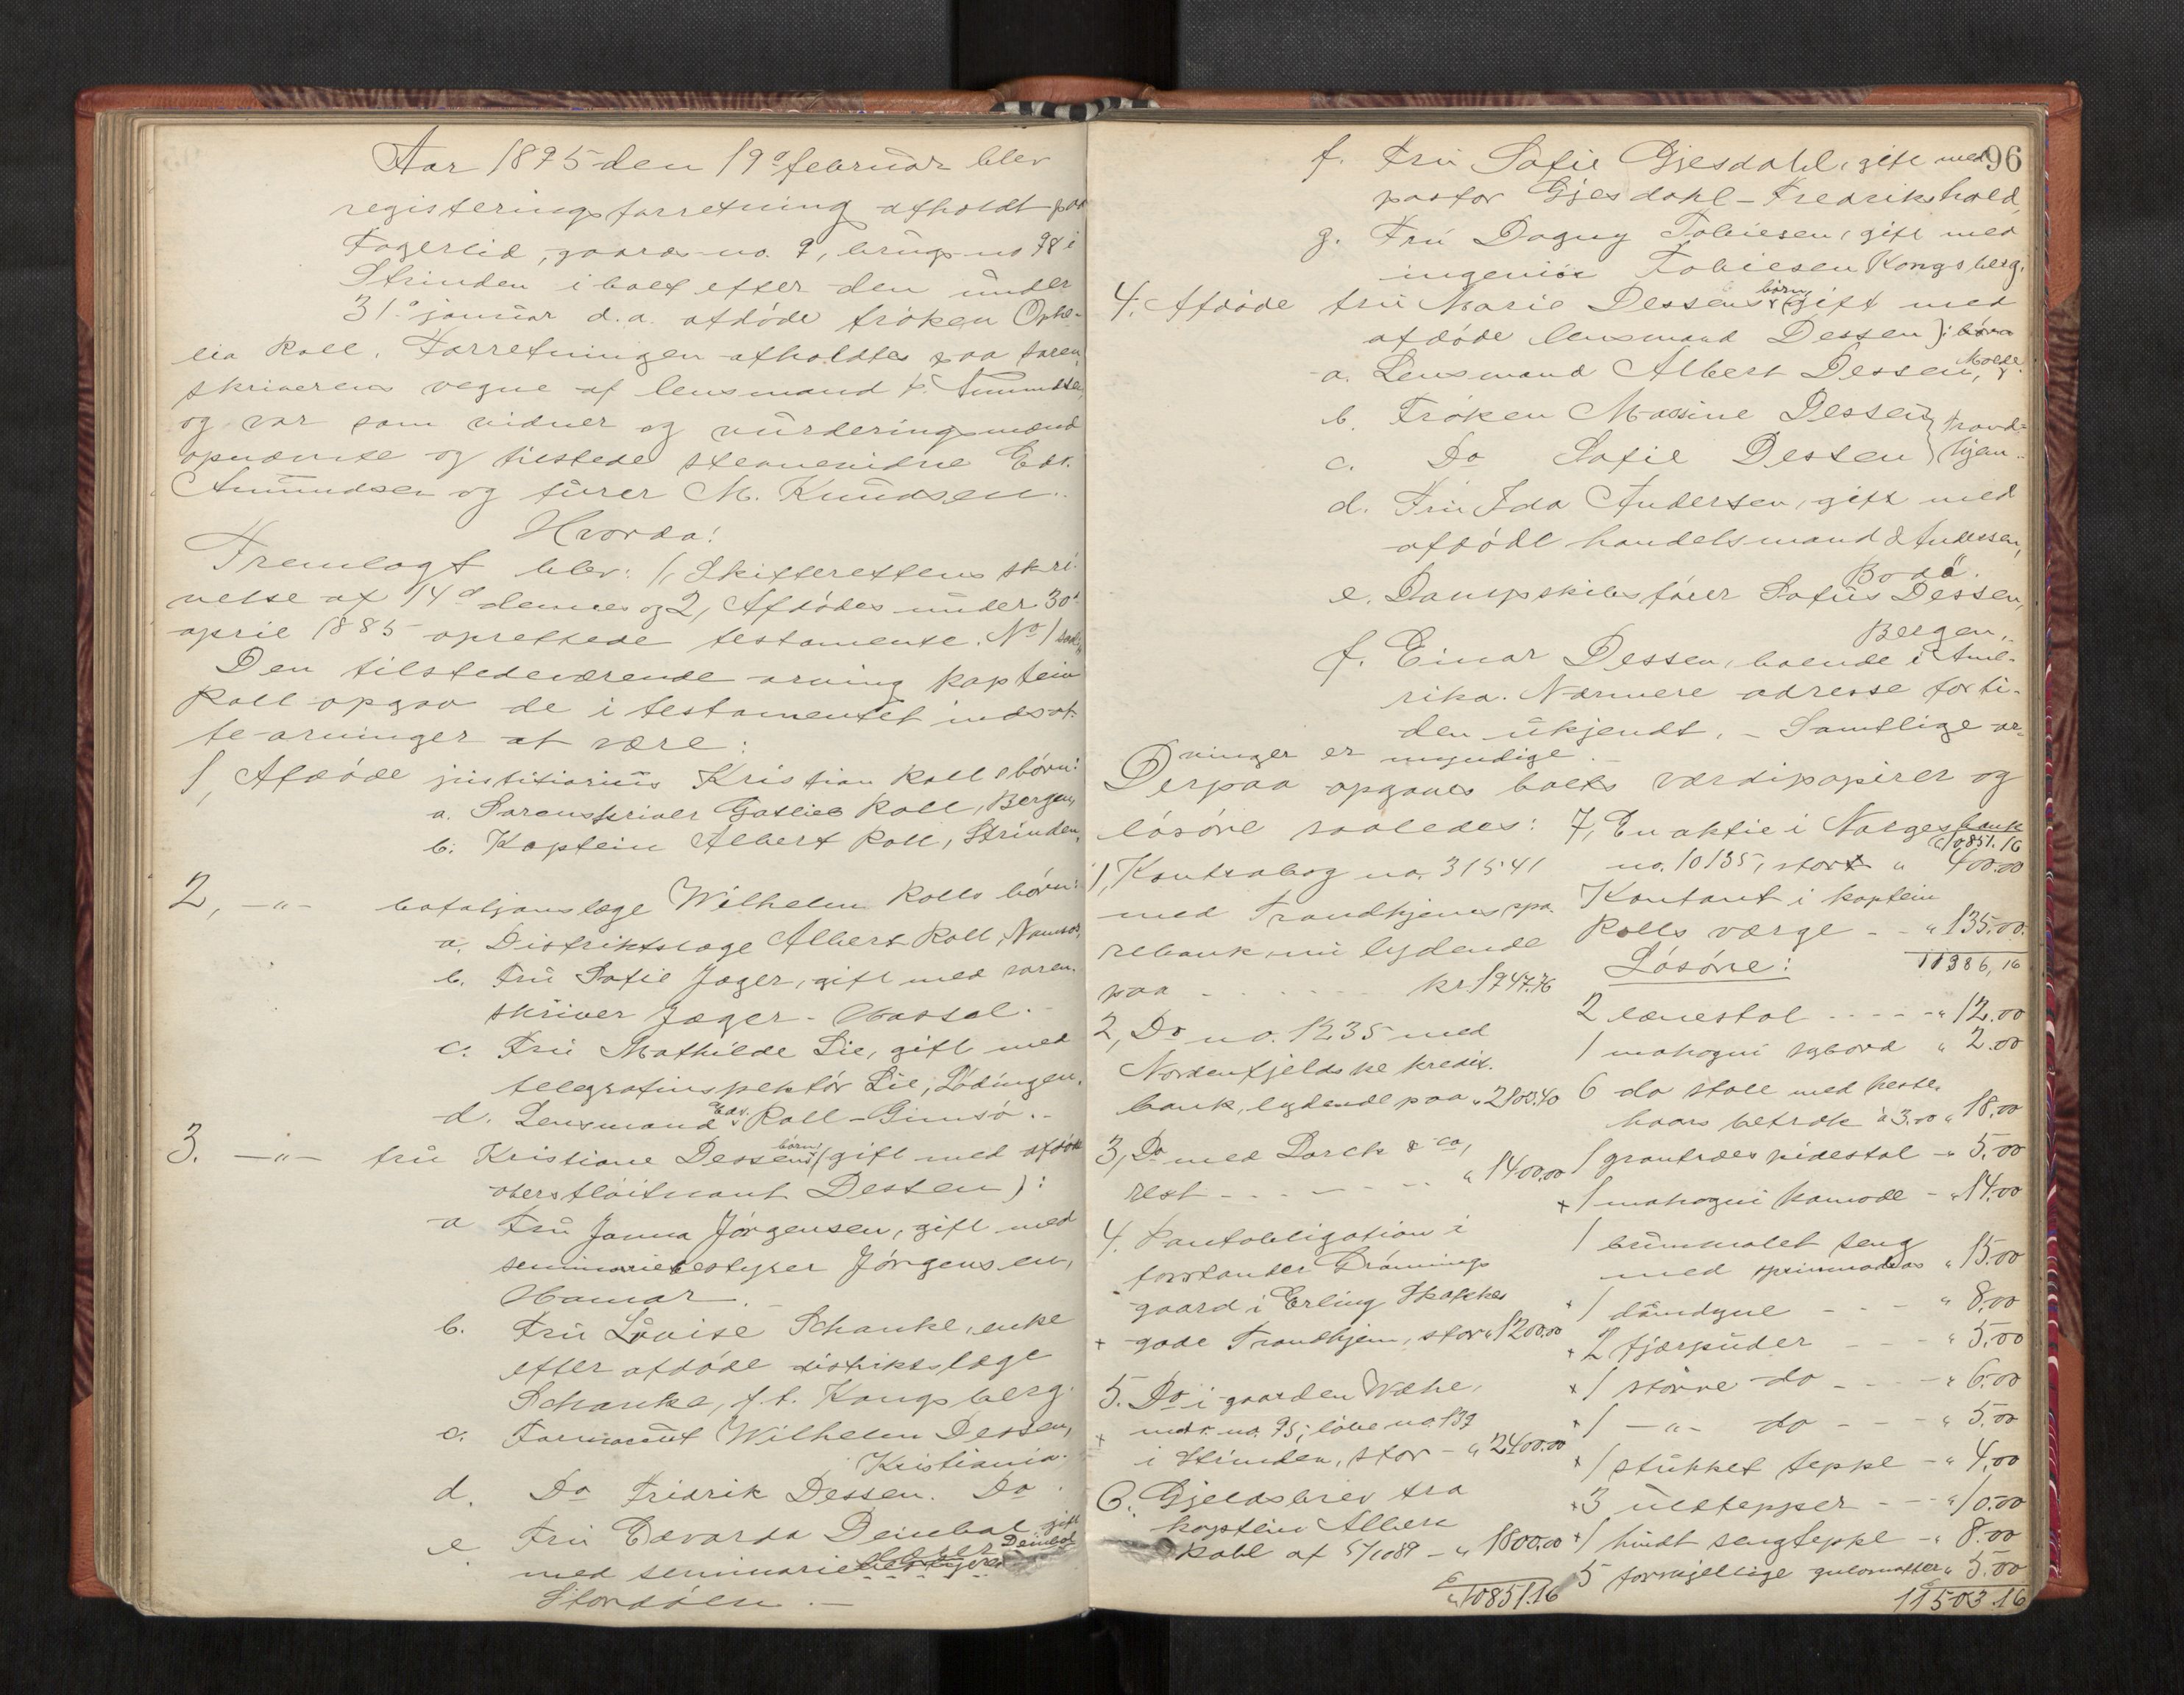 Aar 1895 den 19d februar blev
registeringsforretning afholdt paa
Fagerlid, gaards-no. 9, brugs-no 98 i
Strinden i boet efter den under
31d januar d.a. afdöde fröken Ophe-
lia Roll. Forretningen afholdtes paa soren-
skriverens vegne af lensmand P. Amundsen,
og var som vidner og vurderingsmænd
opnævnte og tilstede stevnevidne Edv.
Amundsen og furer M. Knudsen.
Hvorda:
Fremlagt blev: 1, Skifterettens skri-
velse af 14d dennes og 2, Afdödes under 30d
april 1885 oprettede testamente. No 1
Den tilstedeværende arving kaptein
Roll opgav de i testamentet indsat-
te arvinger at være:
1, Afdöde justitiarius Kristian Roll s börn:
a. Sorenskriver Gotlieb Roll, Bergen,
b. Kaptein Albert Roll, Strinden,
2, -"- bataljonslæge Wilhelm Rolls börn:
a. Distriktslæge Albert Roll, Namsos,
b. Fru Sofie Jæger, gift med soren-
skriver Jæger -
c. Fru Mathilde Lie, gift med
telegrafinspektör Lie, Lödingen,
d. Lensmand Edv. Roll - Gimsö..
3. -"- fru Kristiane Dessens börn (gift med afdöde
oberstlöitnant Dessen):
a Fru Janna Jörgensen, gift med
seminariebestyrer Jörgensen,
Hamar.
b. Fru Lovise Schanke, enke
efter afdöde distriktslæge
Schanke, f.t. Kongsberg.
c. Wilhelm Dessen,
Kristiania.
d. Do Fridrik Dessen. Do.
e Fru Edvarda Deinbol gift
med seminarielærer Deinbol
Stordöen. —
96
f. Fru Sofie Gjesdahl, gift med
pastor Gjesdahl - Fredrikshald,
g. Fru Dagny Tobiesen, gift med
ingeniör Tobiesen Kongsberg.
4. Afdöde fru Marie Dessens börn (gift med
afdöde lensmand Dessen): börn
a. Lensmand Albert Dessen, Molde.
b. Fröken Maxine Dessen } Trond-
c. Do Sofie Dessen } hjem..
d. Fru Ida Andersen, gift med
afdöde handelsmand Andersen,
Bodö.
e. Dampskibsförer Sofus Dessen,
Bergen,.
f. Einar Dessen, boende i Ame-
rika. Nærmere adresse for ti-
den ukjendt. - Samtlige ar-
vinger er myndige.
Derpaa opgaves boets værdipapirer og
lösöre saaledes:
1, Kontrabog no. 31541
med Trondhjems spa-
rebank, nu lydende
paa - - - - - kr 1947.76
2, Do no. 1235 med
Nordenfjeldske kredit-
bank, lydende paa " 2103.40
3, Do med Lorck & co,
rest - - - - - " 1400.00
4. Pantobligation i
forstander Grönnings
gaard i Erling Skakkes
+ gade Trondhjem, stor " 1200.00
5. Do i gaarden Wæhre,
+ matr. no. 95, löbe no. 139
i Strinden, stor - " 2400.00
6. Gjeldsbrev fra
kaptein Albert
Roll af 5/10 89 - " 1800.00
" 10851.16
7, En aktie i Norges bank
" 10851.16
no. 10135, stor " 400.00
Kontant i kaptein
Rolls værge - - " 135.00.
11386,16
Lösöre:
2 lænestol - - - - " 12.00
1 mahogni sybord " 2.00
6 do stole med heste-
haars betræk à 3.00 " 18.00
1 pidestal - " 5.00
+ 1 mahogni komode - " 14.00
1 brunmalet seng
med " 15.00
+ 1 dundyne - - - " 8.00
+ 2 fjærpuder - - " 5.00
+ 1 större do - - - " 6.00
+ 1 -"- do - - - " 5.00
+ 1 stukket teppe - " 4.00
+ 3 uldtepper - - - " 10.00
+ 1 hvidt sengteppe - " 8.00
5 forskjellige gulvmatter " 5.00
11503.16